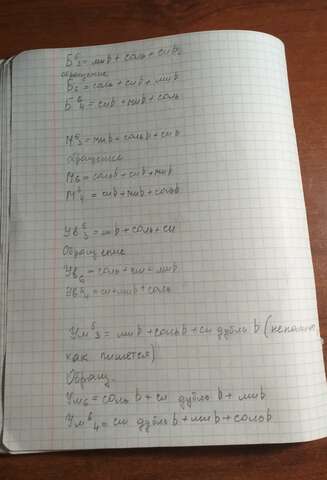 Б5/3 = ми♭ + соль + си♭
обращение
Б6 = соль + си♭ + ми♭
Б6/4 = си♭ + ми♭ + соль
М5/3 = ми♭ + соль♭ + си♭
Обращение
М6 = соль♭ + си♭ + ми♭
М6/4 = си♭ + ми♭ + соль♭
Ув5/3 = ми♭ + соль + си
Обращение
Ув6 = соль + си + ми♭
Ув6/4 = си + ми♭ + соль
Ум5/3 = ми♭ + соль♭ + си дубль ♭ (непомню
как пишется)
Обращ.
Ум6 = соль♭ + си дубль ♭ + ми♭
Ум6/4 = си дубль ♭ + ми♭ + соль♭